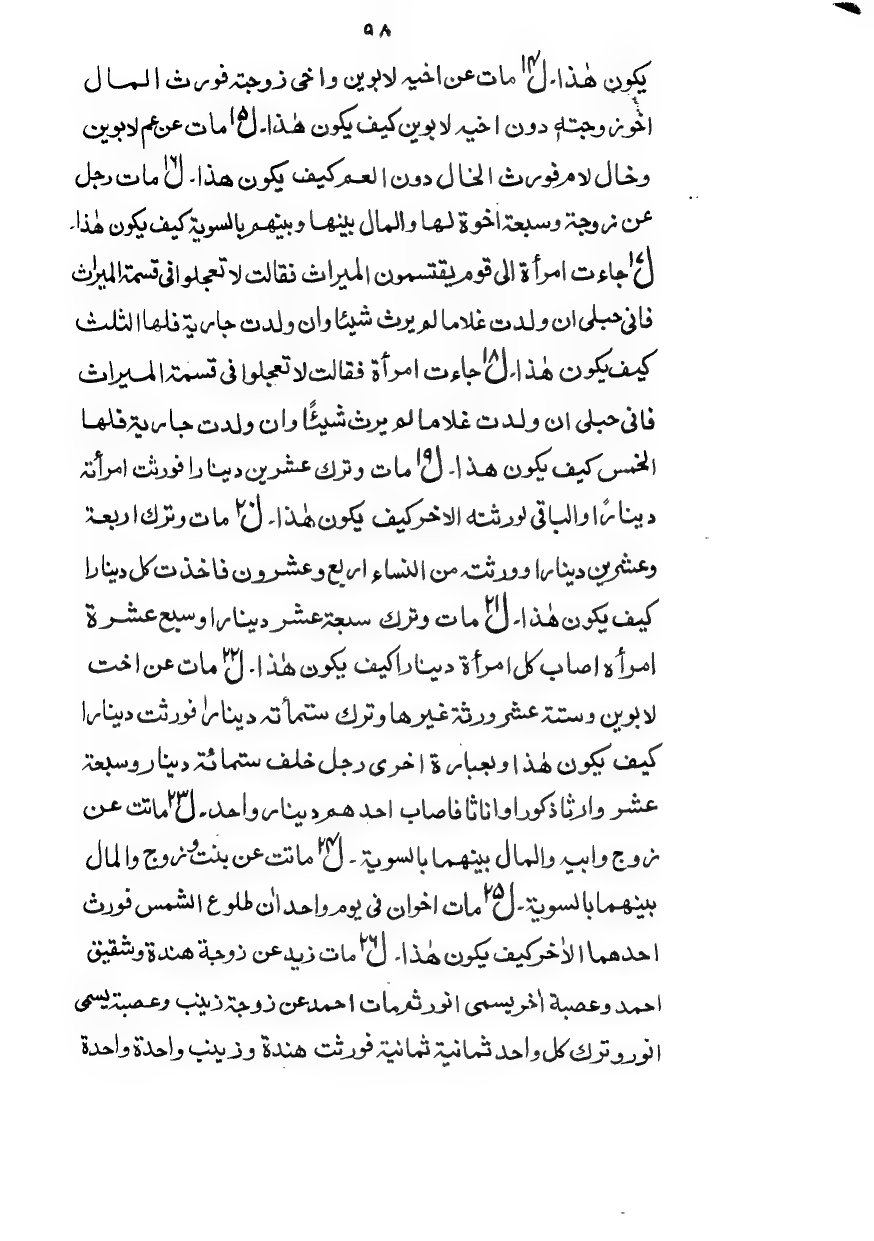 ٥٨
يكون هٰذا۔ ل١٤ مات عن اخيه لابوين واخى زوجته فورث المال
اخو زوجته دون اخيه لابوين كيف يكون هٰذا۔ ل١٥ مات عن عم لابوين
وخال لام فورث الخال دون العم كيف يكون هذا۔ ل١٦ مات رجل
عن زوجة وسبعة اخوة لها والمال بينها وبينهم بالسوية كيف يكون هٰذا۔
ل١٧ جاءت امرأة الى قوم يقتسمون الميراث فقالت لا تعجلوا فى قسمة الميراث
فانى حبلى ان ولدت غلاما لم يرث شيئا وان ولدت جارية فلها الثلث
كيف يكون هٰذا۔ ل١٨ جاءت امرأة فقالت لا تعجلوا فى قسمة الميراث
فانى حبلى ان ولدت غلاما لم يرث شيئًا وان ولدت جارية فلها
الخمس كيف يكون هذا۔ ل١٩ مات وترك عشرين دينارا فورثت امرأته
دينارًا والباقى لورثته الاخر كيف يكون هٰذا۔ ل٢٠ مات وترك اربعة
وعشرين دينارا وورثته من النساء اربع وعشرون فاخذت كل دينارا
كيف يكون هٰذا۔ ل٢١ مات وترك سبعة عشر دينارا وسبع عشرة
امرأة اصاب كل امرأة دينارا كيف يكون هٰذا۔ ل٢٢ مات عن اخت
لابوين وستة عشر ورثة غيرها وترك ستمأته دينارا فورثت دينارا
كيف يكون هٰذا وبعبارة اخرى رجل خلف ستمائة دينار وسبعة
عشر وارثا ذكورا واناثا فاصاب احدهم دينار واحد۔ ل٢٣ ماتت عن
زوج وابيه والمال بينهما بالسوية۔ ل٢٤ ماتت عن بنت وزوج والمال
بينهما بالسوية۔ ل٢٥ مات اخوان فى يوم واحد اٰن طلوع الشمس فورث
احدهما الاٰخر كيف يكون هٰذا۔ ل٢٦ مات زيد عن زوجة هندة وشقيق
احمد وعصبة اٰخر يسمى انور ثم مات احمد عن زوجة زينب وعصبة يسمى
انور وترك كل واحد ثمانية ثمانية فورثت هندة وزينب واحدة واحدة